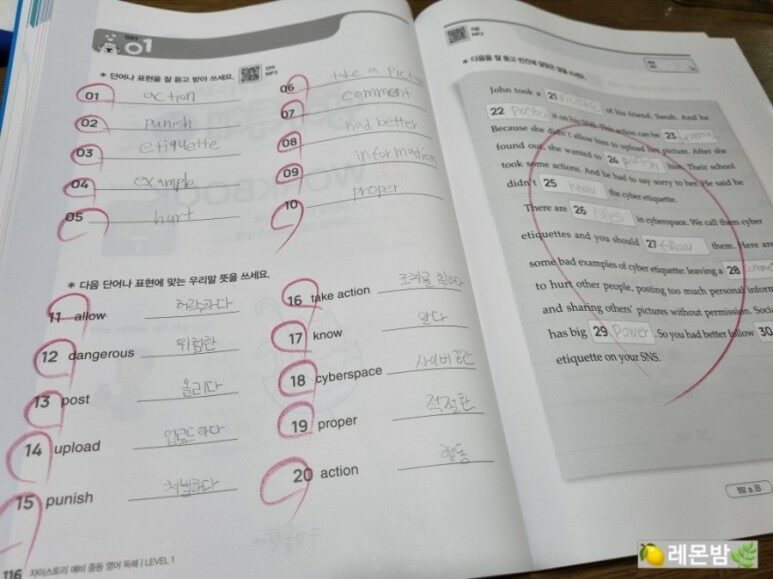 DAY
01
* 단어나 표현을 잘 듣고 받아 쓰세요.
단어
MP3
01 action
02 punish
03 etiquette
04 example
05 hurt
06 take a picture
07 comment
08 had better
09 information
10 proper
* 다음 단어나 표현에 맞는 우리말 뜻을 쓰세요.
11 allow 허락하다
12 dangerous 위험한
13 post 올리다
14 upload 업로드하다
15 punish 처벌하다
16 take action 조치를 취하다
17 know 알다
18 cyberspace 사이버 공간
19 proper 적절한
20 action 행동
116 자이스토리 예비 중등 영어 독해 | LEVEL 1
MP3
* 다음을 잘 듣고 빈칸에 알맞은 말을 쓰세요.
John took a 21 picture of his friend, Sarah. And he
22 posted it on his SNS. This action can be 23
Because she didn't allow him to upload her picture. After she
found out, she wanted to 24 punish him. Their school
took some actions. And he had to say sorry to her. He said he
didn't 25 know the cyber etiquette.
There are 26 rules in cyberspace. We call them cyber
etiquettes and you should 27 follow them. Here are
some bad examples of cyber etiquette: leaving a 28
to hurt other people, posting too much personal inform
and sharing others' pictures without permission. Soci
has big 29 Power. So you had better follow 30
etiquette on your SNS.
정답 p.33
🍋 레몬밤🌿